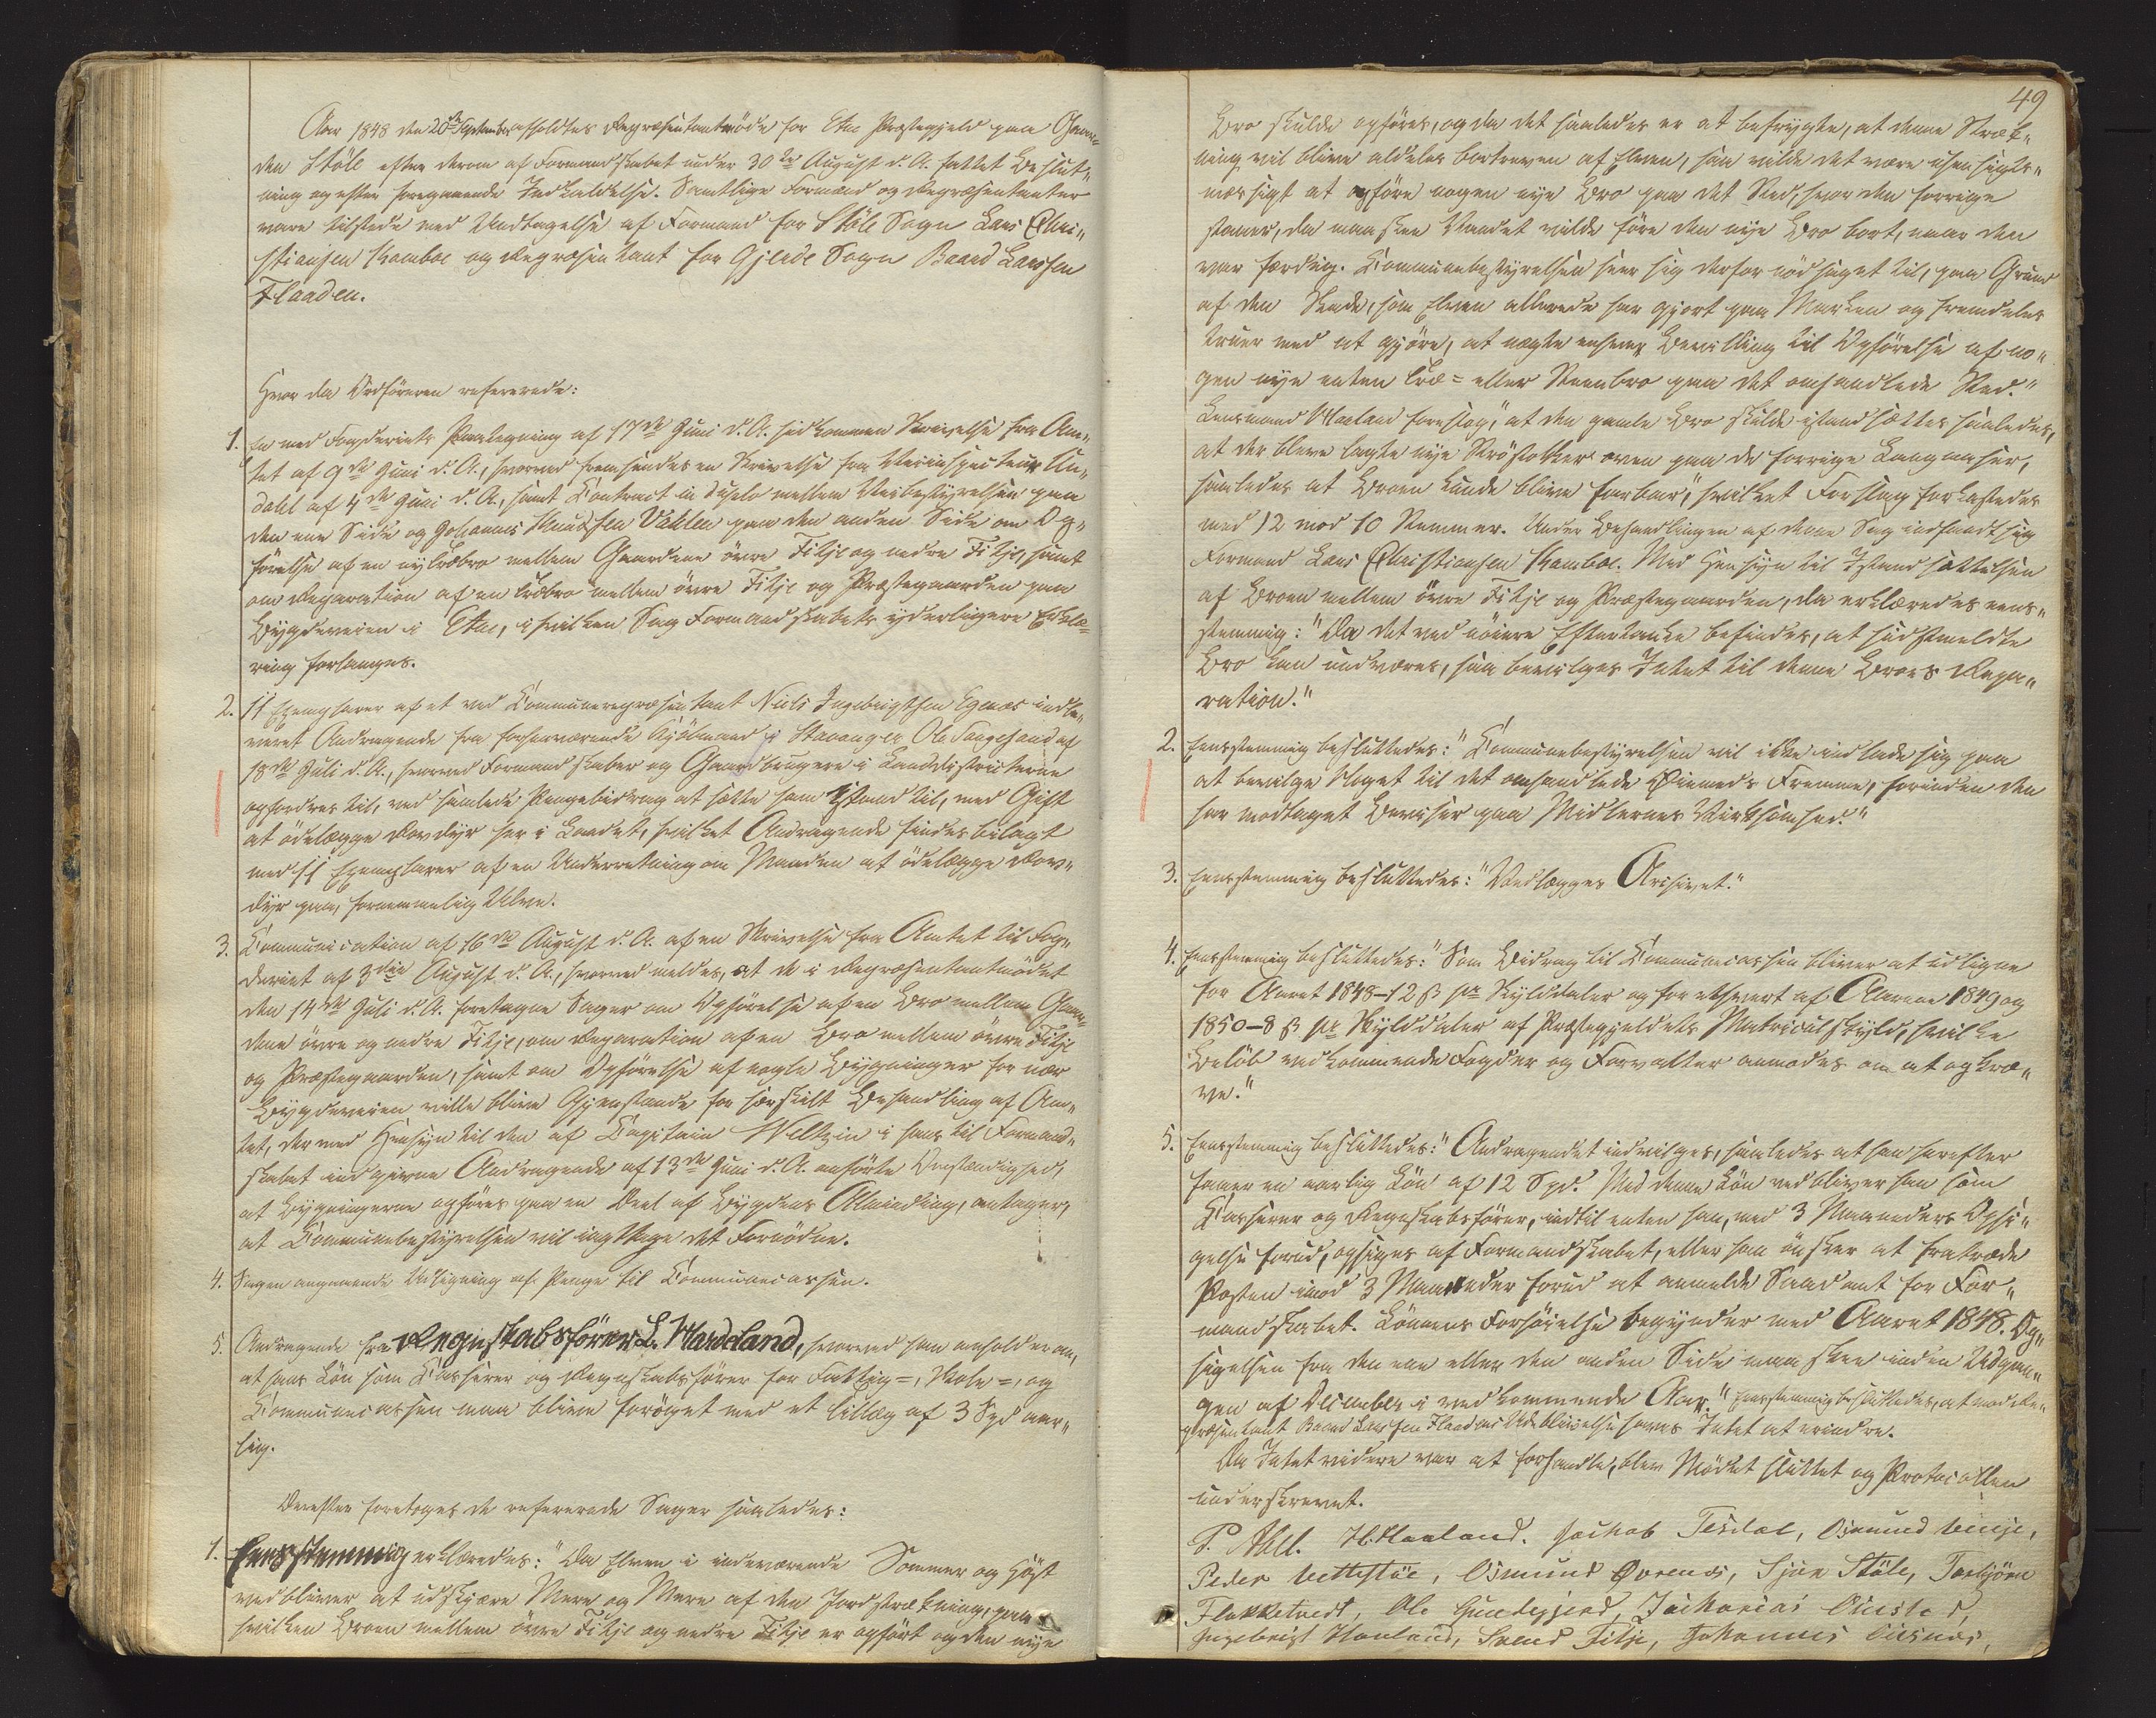 Aar 1848 den 20de September afholdtes Repræsentantmöde for Etne Præstegjeld paa Gaar„
den Stöle efter derom af Formandskabet under 30te August d. A. fattet Beslut„
ning og efter foregaaende Indkaldelse. Samtlige Formænd og Repræsentanter
vare tilstede med Undtagelse af Formand for Stöle Sogn Lars Chri„
stiansen Kamboe og Repræsentant for Gjerde Sogn Baard Larsen
Flaaden.
Hvor da Ordföreren refererede:
1. En med Fogderiets Paategning af 17de Juni d. A. hidkommen Skrivelse fra Am„
tet af 9de Juni d. A., hvorved fremsendes en Skrivelse fra Veiinspecteur
dahl af 4de Juni d. A., samt Contract in duplo mellem Veibestyrelsen paa
den ene Side og Johannes Knudsen Vahlen paa den anden Side om Op„
förelse af en ny Træbro mellem Gaardene övre Fitje og nedre Fitje, samt
om Reparation af en Træbro mellem övre Fitje og Præstegaarden paa
Bygdeveien i Etne, i hvilken Sag Formandskabets yderligere Erklæ„
ring forlanges.
2. 11 Exemplarer af et ved Communerepræsentant Niels Ingebrigtsen Egenæs indle„
veret Andragende fra forhenværende Kjöbmand i Stavanger Ole Torgersen af
18de Juli d. A., hvorved Formandskaber og Gaardbrugere i Landdistricterne
opfordres til, ved samlede Pengebidrag at sætte ham istand til, med Gift
at ödelægge Rovdyr her i Landet, hvilket Andragende findes bilagt
med 11 Exemplarer af en Underretning om Maaden at ödelægge Rov„
dyr paa, fornemmelig Ulve.
3. Communication af 16de August d. A. af en Skrivelse fra Amtet til Fog„
deriet af 3die August d. A., hvorved meldes, at de i Repræsentantmödet
den 14de Juli d. A. foretagne Sager om Opförelse af en Bro mellem Gaar„
dene övre og nedre Fitje, om Reparation af en Bro mellem övre Fitje
og Præstegaarden, samt om Opförelse af nogle Bygninger for nær
Bygdeveien ville blive Gjenstande for særskilt Behandling af Am„
tet, der med Hensyn til den af Capitain Weltzin i hans til Formand„
skabet indgivne Andragende af 13de Juni d. A. anförte Omstændighed,
at Bygningerne opföres paa en Deel af Bygdens Alminding, antager,
at Communebestyrelsen vil iagttage det Fornödne.
4. Sagen angaaende Udligning af Penge til Communecassen.
5. Andragende fra Regnskabsförer L. Haaeland, hvorved han anholder om,
at hans Lön som Casserer og Regnskabsförer for Fattig=, Skole=, og
Communecassen maa blive foröget med et Tillæg af 3 Spd aar„
lig.
Derefter foretoges de refererede Sager saaledes:
1. Eensstemmig erklæredes: "Da Elven i indeværende Sommer og Höst
vedbliver at udskjære Mere og Mere af den Jordstrækning, paa
hvilken Broen mellem övre Fitje og nedre Fitje er opfört og den nye
49
Bro skulde opföres, og da det saaledes er at befrygte, at denne Stræk„
ning vil blive aldeles bortreven af Elven, saa vilde det være uhensigts„
mæssigt at opföre nogen nye Bro paa det Sted, hvor den forrige
staaer, da maaskee Vandet vilde före den nye Bro bort, naar den
var færdig. Communebestyrelsen seer sig derfor nödsaget til, paa Grund
af den Skade, som Elven allerede har gjort paa Marken og fremdeles
truer med at gjöre, at nægte enhver Bevilling til Opförelse af no„
gen nye enten Træ= eller Steenbro paa det omhandlede Sted."
Lensmand Haaland foreslog, "at den gamle Bro skulde istandsættes saaledes,
at der bleve lagte nye Ströstokker oven paa de forrige Langaaser,
saaledes at Broen kunde blive farbar", hvilket Forslag forkastedes
med 12 mod 10 Stemmer. Under Behandlingen af denne Sag indfandt sig
Formand Lars Christiansen Kamboe. Med Hensyn til Istandsættelsen
af Broen mellem övre Fitje og Præstegaarden, da erklæredes eens„
stemmig: "Da det ved nöiere Eftertanke befindes, at sidstmeldte
Bro kan undværes, saa bevilges Intet til denne Broes Repa„
ration."
2. Eensstemmig besluttedes: "Communebestyrelsen vil ikke indlade sig paa
at bevilge Noget til det omhandlede Öiemeds Fremme, forinden den
har modtaget Beviser paa Midlernes Virksomhed."
3. Eensstemmig besluttedes: "Vedlægges Archivet."
4. Eensstemmig besluttedes: "Som Bidrag til Communecassen bliver at udligne
for Aaret 1848–12 ß pr Skylddaler og for ethvert af Aarene 1849 og
1850–8 ß pr Skylddaler af Præstegjeldets Matriculskyld, hvilke
Belöb vedkommende Fogder og Forvalter anmodes om at opkræ„
ve."
5. Eensstemmig besluttedes: "Andragendet indvilges, saaledes at han herefter
faaer en aarlig Lön af 12 Spd. Med denne Lön vedbliver han som
Casserer og Regnskabsförer, indtil enten han, med 3 Maaneders Opsi„
gelse forud, opsiges af Formandskabet, eller han önsker at fratræde
Posten imod 3 Maaneder forud at anmelde Saadant for For„
mandskabet. Lönnens Forhöielse begynder med Aaret 1848. Op„
sigelsen fra den ene eller den anden Side maa skee inden Udgan„
gen af December i vedkommende Aar." Eensstemmig besluttedes, at mod Re„
præsentant Baard Larsen Flaadens Udeblivelse haves Intet at erindre.
Da Intet videre var at forhandle, blev Mödet sluttet og Protocollen
underskrevet.
P. Abel. H. Haaland. Jachob Tesdal, Osmund Vinje,
Peder Vettestöe, Osmund Övrenæs, Sjur Stöle, Torbjörn
Flokketvedt, Ole Gundegjerd, Zacharias Oiestad,
Ingebrigt Haaland, Svend Fitje, Johannes